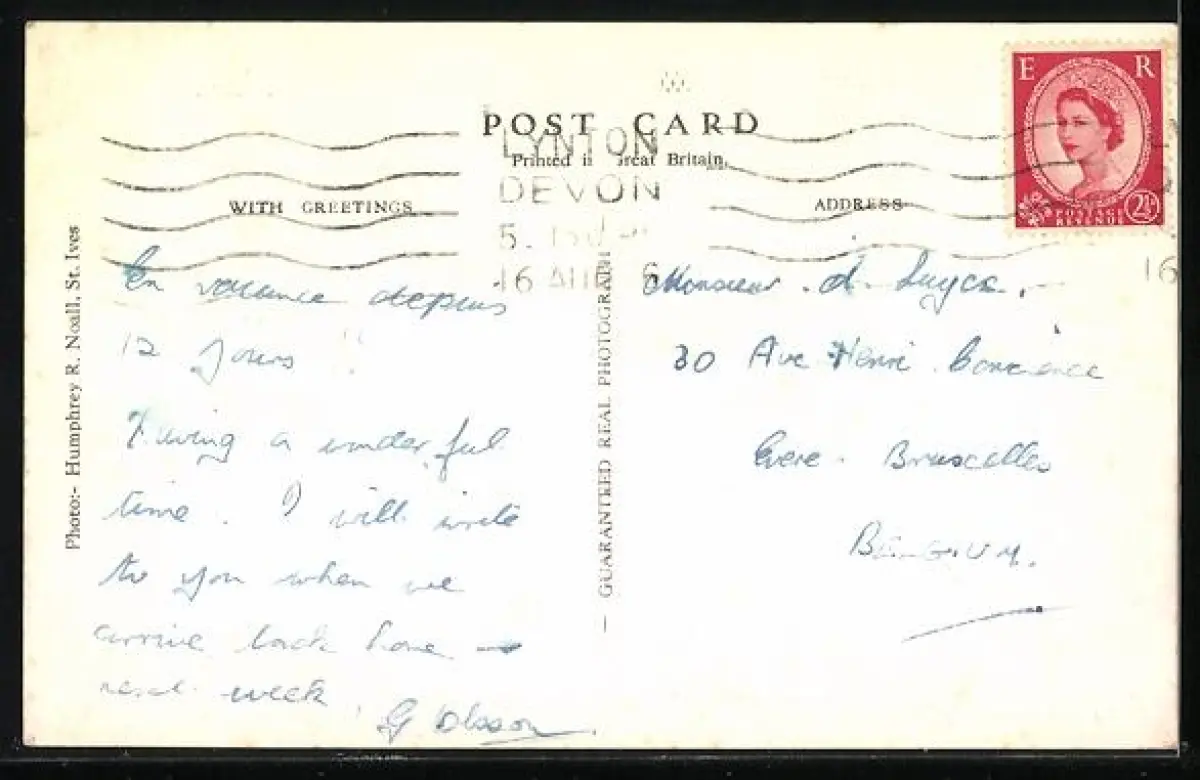 POST CARD
Printed in Great Britain.
WITH GREETINGS
ADDRESS
E R
POSTAGE
REVENUE
2½D
LYNTON
DEVON
16 AUG
16
Photo:- Humphrey R. Noall, St. Ives
- GUARANTEED REAL PHOTOGRAPH
En vacance depuis
12 jours
Having a wonderful
time. I will write
to you when we
arrive back home -
next week.
Monsieur
30 Ave Henri Conscience
Evere. Bruxelles
BELGIUM.